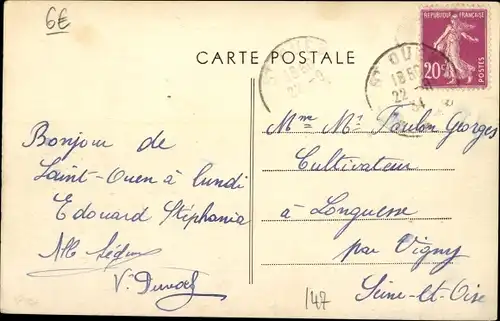 6€
CARTE POSTALE
REPUBLIQUE FRANÇAISE
20c
POSTES
ST OUEN
18
22
34
Bonjour de
Saint-Ouen à lundi
Edouard Stéphania
Mme Mr Foulon Georges
Cultivateur
à Longuesse
par Vigny
Seine-et-Oise
147